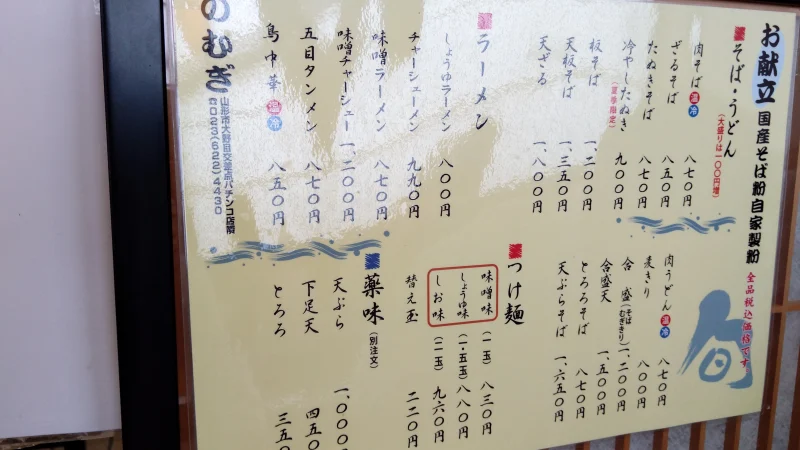 お献立 国産そば粉自家製粉
全品税込価格です
旬
そば・うどん
(大盛りは一〇〇円増)
肉そば 温 冷 八七〇円
ざるそば 八五〇円
たぬきそば 八七〇円
冷やしたぬき (夏季限定) 九〇〇円
板そば 一、二〇〇円
天板そば 一、三五〇円
天ざる 一、八〇〇円
肉うどん 温 冷 八七〇円
麦きり 八〇〇円
合盛 (そば むぎきり) 一、二〇〇円
合盛天 一、五〇〇円
とろろそば 八七〇円
天ぷらそば 一、六五〇円
ラーメン
しょうゆラーメン 八〇〇円
チャーシューメン 九九〇円
味噌ラーメン 八七〇円
味噌チャーシュー 一、二〇〇円
五目タンメン 八七〇円
鳥中華 温 冷 八五〇円
つけ麺
味噌味
しょうゆ味
しお味
(一玉) 八三〇円
(一・五玉) 八八〇円
(二玉) 九六〇円
替え玉 二二〇円
薬味 (別注文)
天ぷら 一、〇〇〇
下足天 四五〇
とろろ 三五〇
のむぎ
山形市大野目交差点パチンコ店隣
☎023(622)4430